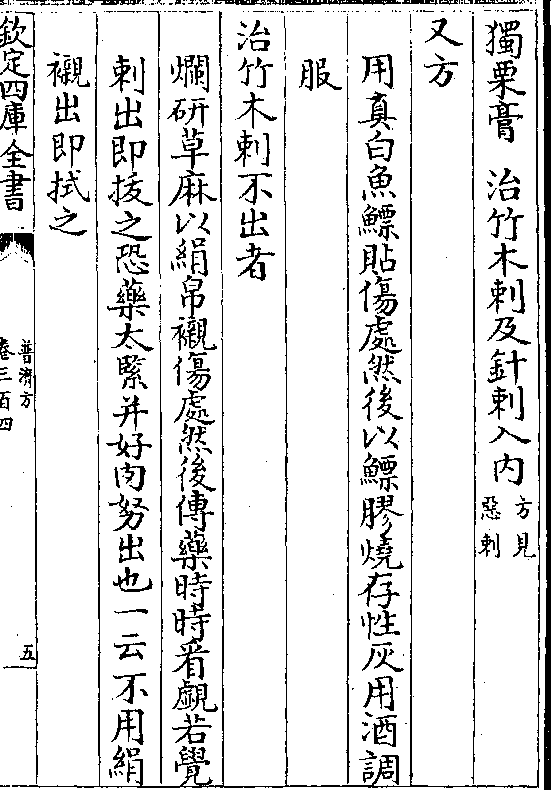 獨栗膏　治竹木刺及針刺入内方見惡刺
又方
用真白魚鰾貼傷處然後以鰾膠燒存性灰用酒調
服
治竹木刺不出者
爛研草麻以絹帛襯傷處然後傅藥時時看覷若覺
刺出即拔之恐藥太緊并好肉努出也一云不用絹
襯出即拭之
欽定四庫全書
普濟方
卷三百四
五